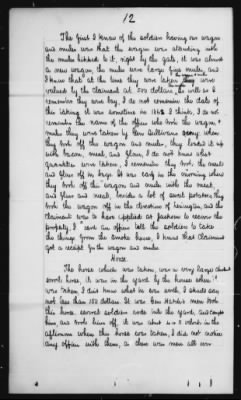 12
The first I knew of the soldier having our wagon
and mules was that the wagon was standing with
the mules hitched to it right by the gate, it was almost
a new wagon, the mules were large fine mules, and
the wagon & mules
I knew that at the time they were taken they were
valued by the claimant at 300 dollars, as well as I
remember they were bay, I do not remember the date of
this taking it was sometime in 1862 I think, I do not
remember the name of the officer who took the wagon &
mules they were taken by Gen Sullivans army when
they took off the wagon and mules, they loaded it up
with bacon, meal, and flour, I do not know what
quantities were taken, I remember they took the meal
and flour off in bags. It was early in the morning when
they took off this wagon and mules with the meat,
and flour and meal, beside a lot of sweet potatoes, they
took the wagon off in the direction of Lexington, and the
claimant was to have applied at Jackson to recover the
property, I saw an officer tell the soldiers to take
the things from the smoke house, I know that claimant
got a receipt for the wagon and mules
Horse.
The horse which was taken, was a very large
sorrel horse, it was in the yard by the house when it
was taken, I dont know what he was worth, I should say
not less than 150 dollars. It was Gen Hurst's men took
this horse, several soldiers rode into the yard, and caught
him, and took him off. It was about 2 o clock in the
afternoon when this horse was taken, I did not notice
any officer with them, as there was men all over